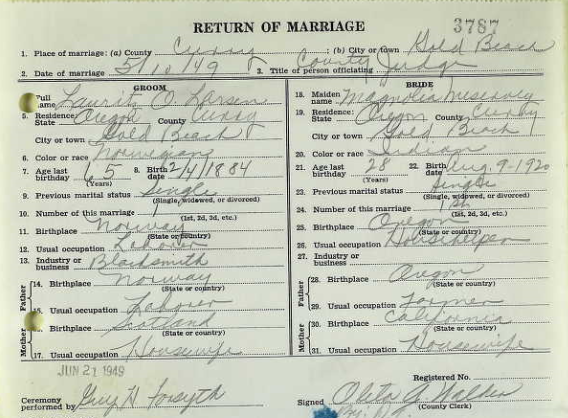 RETURN OF MARRIAGE 3787
1. Place of marriage: (a) County Curry (b) City or town Gold Beach
2. Date of marriage 5/10/49 3. Title of person officiating County Judge
GROOM
Full name Laurits O Larsen
5. Residence: State Oregon County Curry
City or town Gold Beach
6. Color or race Norwegian
7. Age last birthday 65 (Years) 8. Birth 2/4/1884
9. Previous marital status Single
(Single, widowed, or divorced)
10. Number of this marriage 1
(1st, 2d, 3d, etc.)
11. Birthplace Norway
(State or country)
12. Usual occupation Laborer
13. Industry or business Blacksmith
Father
14. Birthplace Norway
(State or country)
15. Usual occupation Laborer
Mother
Birthplace Scotland
(State or country)
17. Usual occupation Housewife
BRIDE
18. Maiden name Magnolia
19. Residence: State Oregon County Curry
City or town Gold Beach
20. Color or race Indian
21. Age last birthday 28 (Years) 22. Birth Aug. 9-1920
23. Previous marital status Single
(Single, widowed, or divorced)
24. Number of this marriage 1st
(1st, 2d, 3d, etc.)
25. Birthplace Oregon
(State or country)
26. Usual occupation Housekelper
27. Industry or business
Father
28. Birthplace Oregon
(State or country)
29. Usual occupation Farmer
Mother
30. Birthplace California
(State or country)
31. Usual occupation Housewife
JUN 21 1949
Ceremony performed by Guy H Forsyth
Registered No.
Signed Walker
(County Clerk)